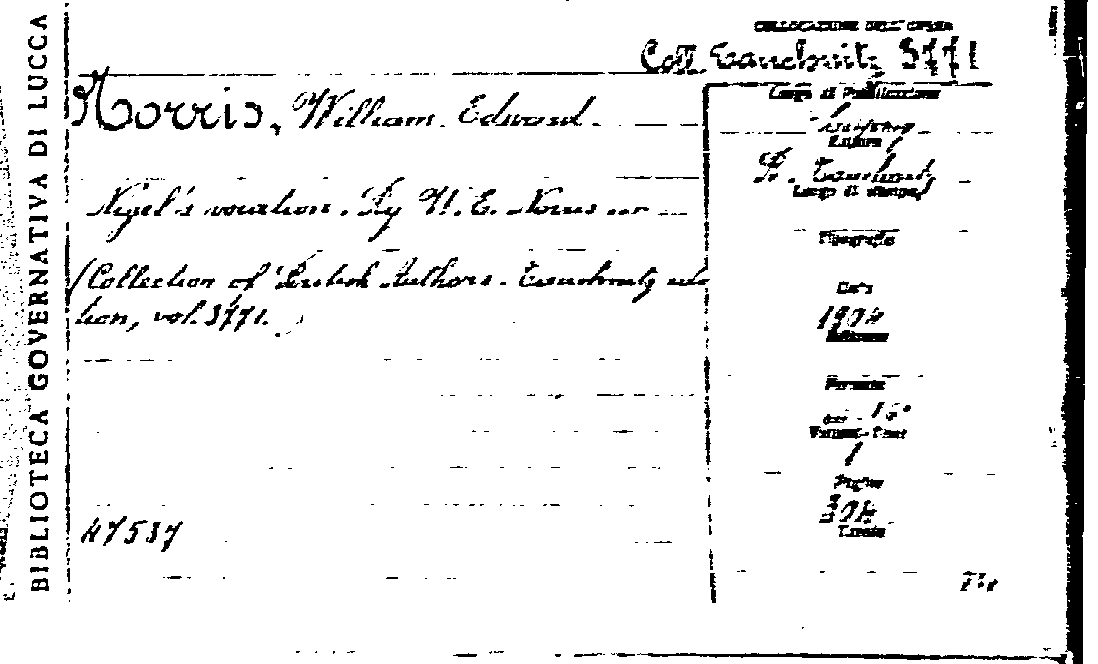 BIBLIOTECA GOVERNATIVA DI LUCCA
COLLOCAZIONE DELL'OPERA
Coll. Tauchnitz 3771
Norris, William Edward.
Luogo di Pubblicazione
Editore
B. Tauchnitz
Luogo di stampa
Nigel's vocation. By W. E. Norris ...
Tipografia
(Collection of British Authors. Tauchnitz edi
tion, vol. 3771.)
Data
1904
Edizione
Formato
in - 16°
Volumi - Parti
1
Pagine
304
Tavole
47537